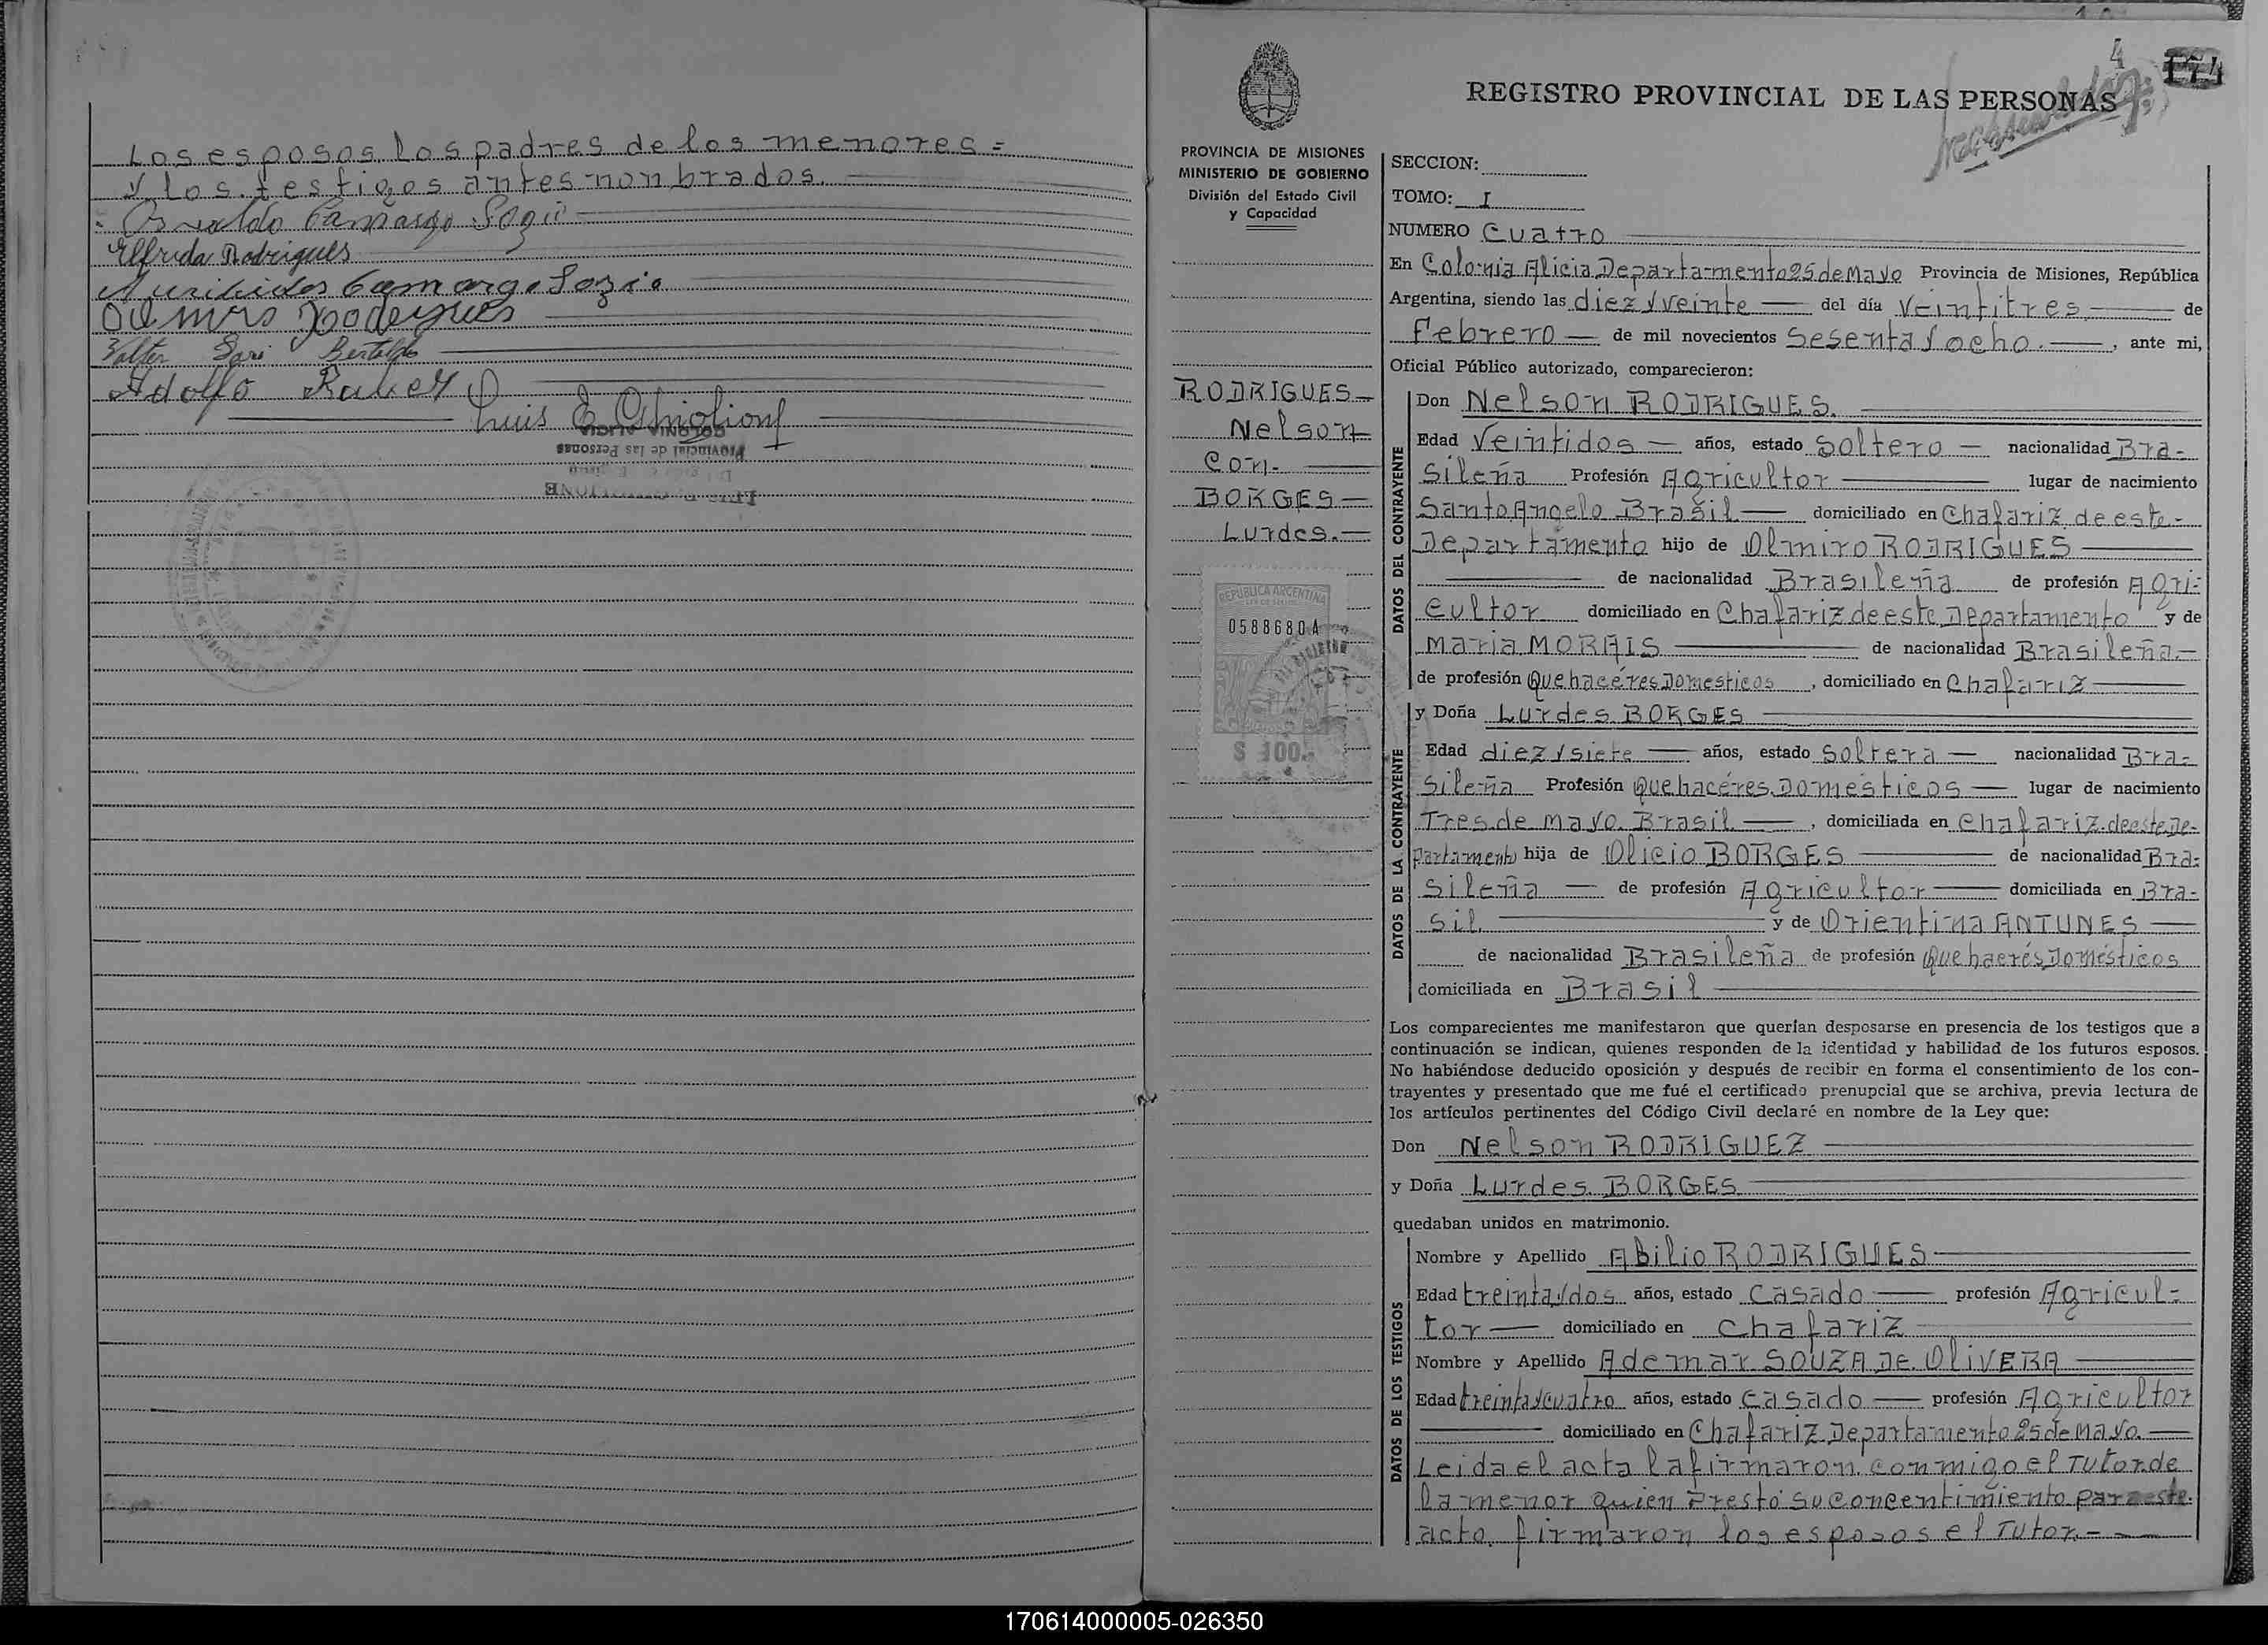 Los esposos, los padres de los menores =
y los testigos antes nonbrados.
Elfrida Rodrigues
Camargo
Rodrigues
Valter Bertoldo
Adolfo
Luis E
COLONIA ALICIA
Provincial de las Personas
4
REGISTRO PROVINCIAL DE LAS PERSONAS
PROVINCIA DE MISIONES
MINISTERIO DE GOBIERNO
División del Estado Civil
y Capacidad
RODRIGUES
Nelson
Con.
BORGES
Lurdes.
REPUBLICA ARGENTINA
0588680A
$ 100.-
SECCION:
TOMO: I
NUMERO Cuatro
En Colonia Alicia Departamento 25 de Mayo Provincia de Misiones, República
Argentina, siendo las diez y veinte del día Veintitres de
Febrero de mil novecientos Sesenta y ocho. , ante mi,
Oficial Público autorizado, comparecieron:
DATOS DEL CONTRAYENTE
Don Nelson RODRIGUES.
Edad Veintidos años, estado Soltero nacionalidad Bra-
Sileña Profesión Agricultor lugar de nacimiento
Santo Angelo Brasil domiciliado en Chafariz de este-
Departamento hijo de Olmiro RODRIGUES
de nacionalidad Brasileña de profesión Agri-
cultor domiciliado en Chafariz de este Departamento y de
Maria MORAIS de nacionalidad Brasileña.
de profesión Quehacéres Domesticos , domiciliado en Chafariz
DATOS DE LA CONTRAYENTE
y Doña Lurdes BORGES
Edad diez y siete años, estado Soltera nacionalidad Bra-
Sileña Profesión Quehacéres Domésticos lugar de nacimiento
Tres de mayo. Brasil , domiciliada en Chafariz de este De-
partamento hija de Olicio BORGES de nacionalidad Bra-
Sileña de profesión Agricultor domiciliada en Bra-
Sil. y de Orientina ANTUNES
de nacionalidad Brasileña de profesión Quehaerés Domésticos
domiciliada en Brasil
Los comparecientes me manifestaron que querían desposarse en presencia de los testigos que a
continuación se indican, quienes responden de la identidad y habilidad de los futuros esposos.
No habiéndose deducido oposición y después de recibir en forma el consentimiento de los con-
trayentes y presentado que me fué el certificado prenupcial que se archiva, previa lectura de
los artículos pertinentes del Código Civil declaré en nombre de la Ley que:
Don Nelson RODRIGUEZ
y Doña Lurdes BORGES
quedaban unidos en matrimonio.
DATOS DE LOS TESTIGOS
Nombre y Apellido Abilio RODRIGUES
Edad treinta y dos años, estado Casado profesión Agricul-
tor domiciliado en Chafariz
Nombre y Apellido Ademar SOUZA DE OliVERA
Edad treinta y cuatro años, estado Casado profesión Agricultor
domiciliado en Chafariz Departamento 25 de Mayo.
Leida el acta la firmaron conmigo el Tutor de
la menor quien Prestó su concentimiento para este
acto. firmaron los esposos el Tutor.-
170614000005-026350